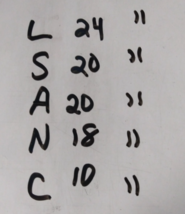 L 24 "
S 20 "
A 20 "
N 18 "
C 10 "